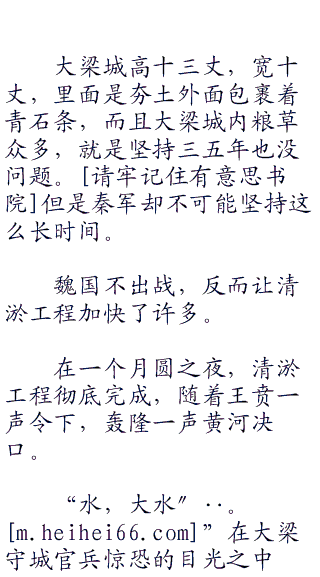 大梁城高十三丈，宽十
丈，里面是夯土外面包裹着
青石条，而且大梁城内粮草
众多，就是坚持三五年也没
问题。[请牢记住有意思书
院]但是秦军却不可能坚持这
么长时间。
魏国不出战，反而让清
淤工程加快了许多。
在一个月圆之夜，清淤
工程彻底完成，随着王贲一
声令下，轰隆一声黄河决
口。
“水，大水〞··。
[m.heihei66.com]”在大梁
守城官兵惊恐的目光之中